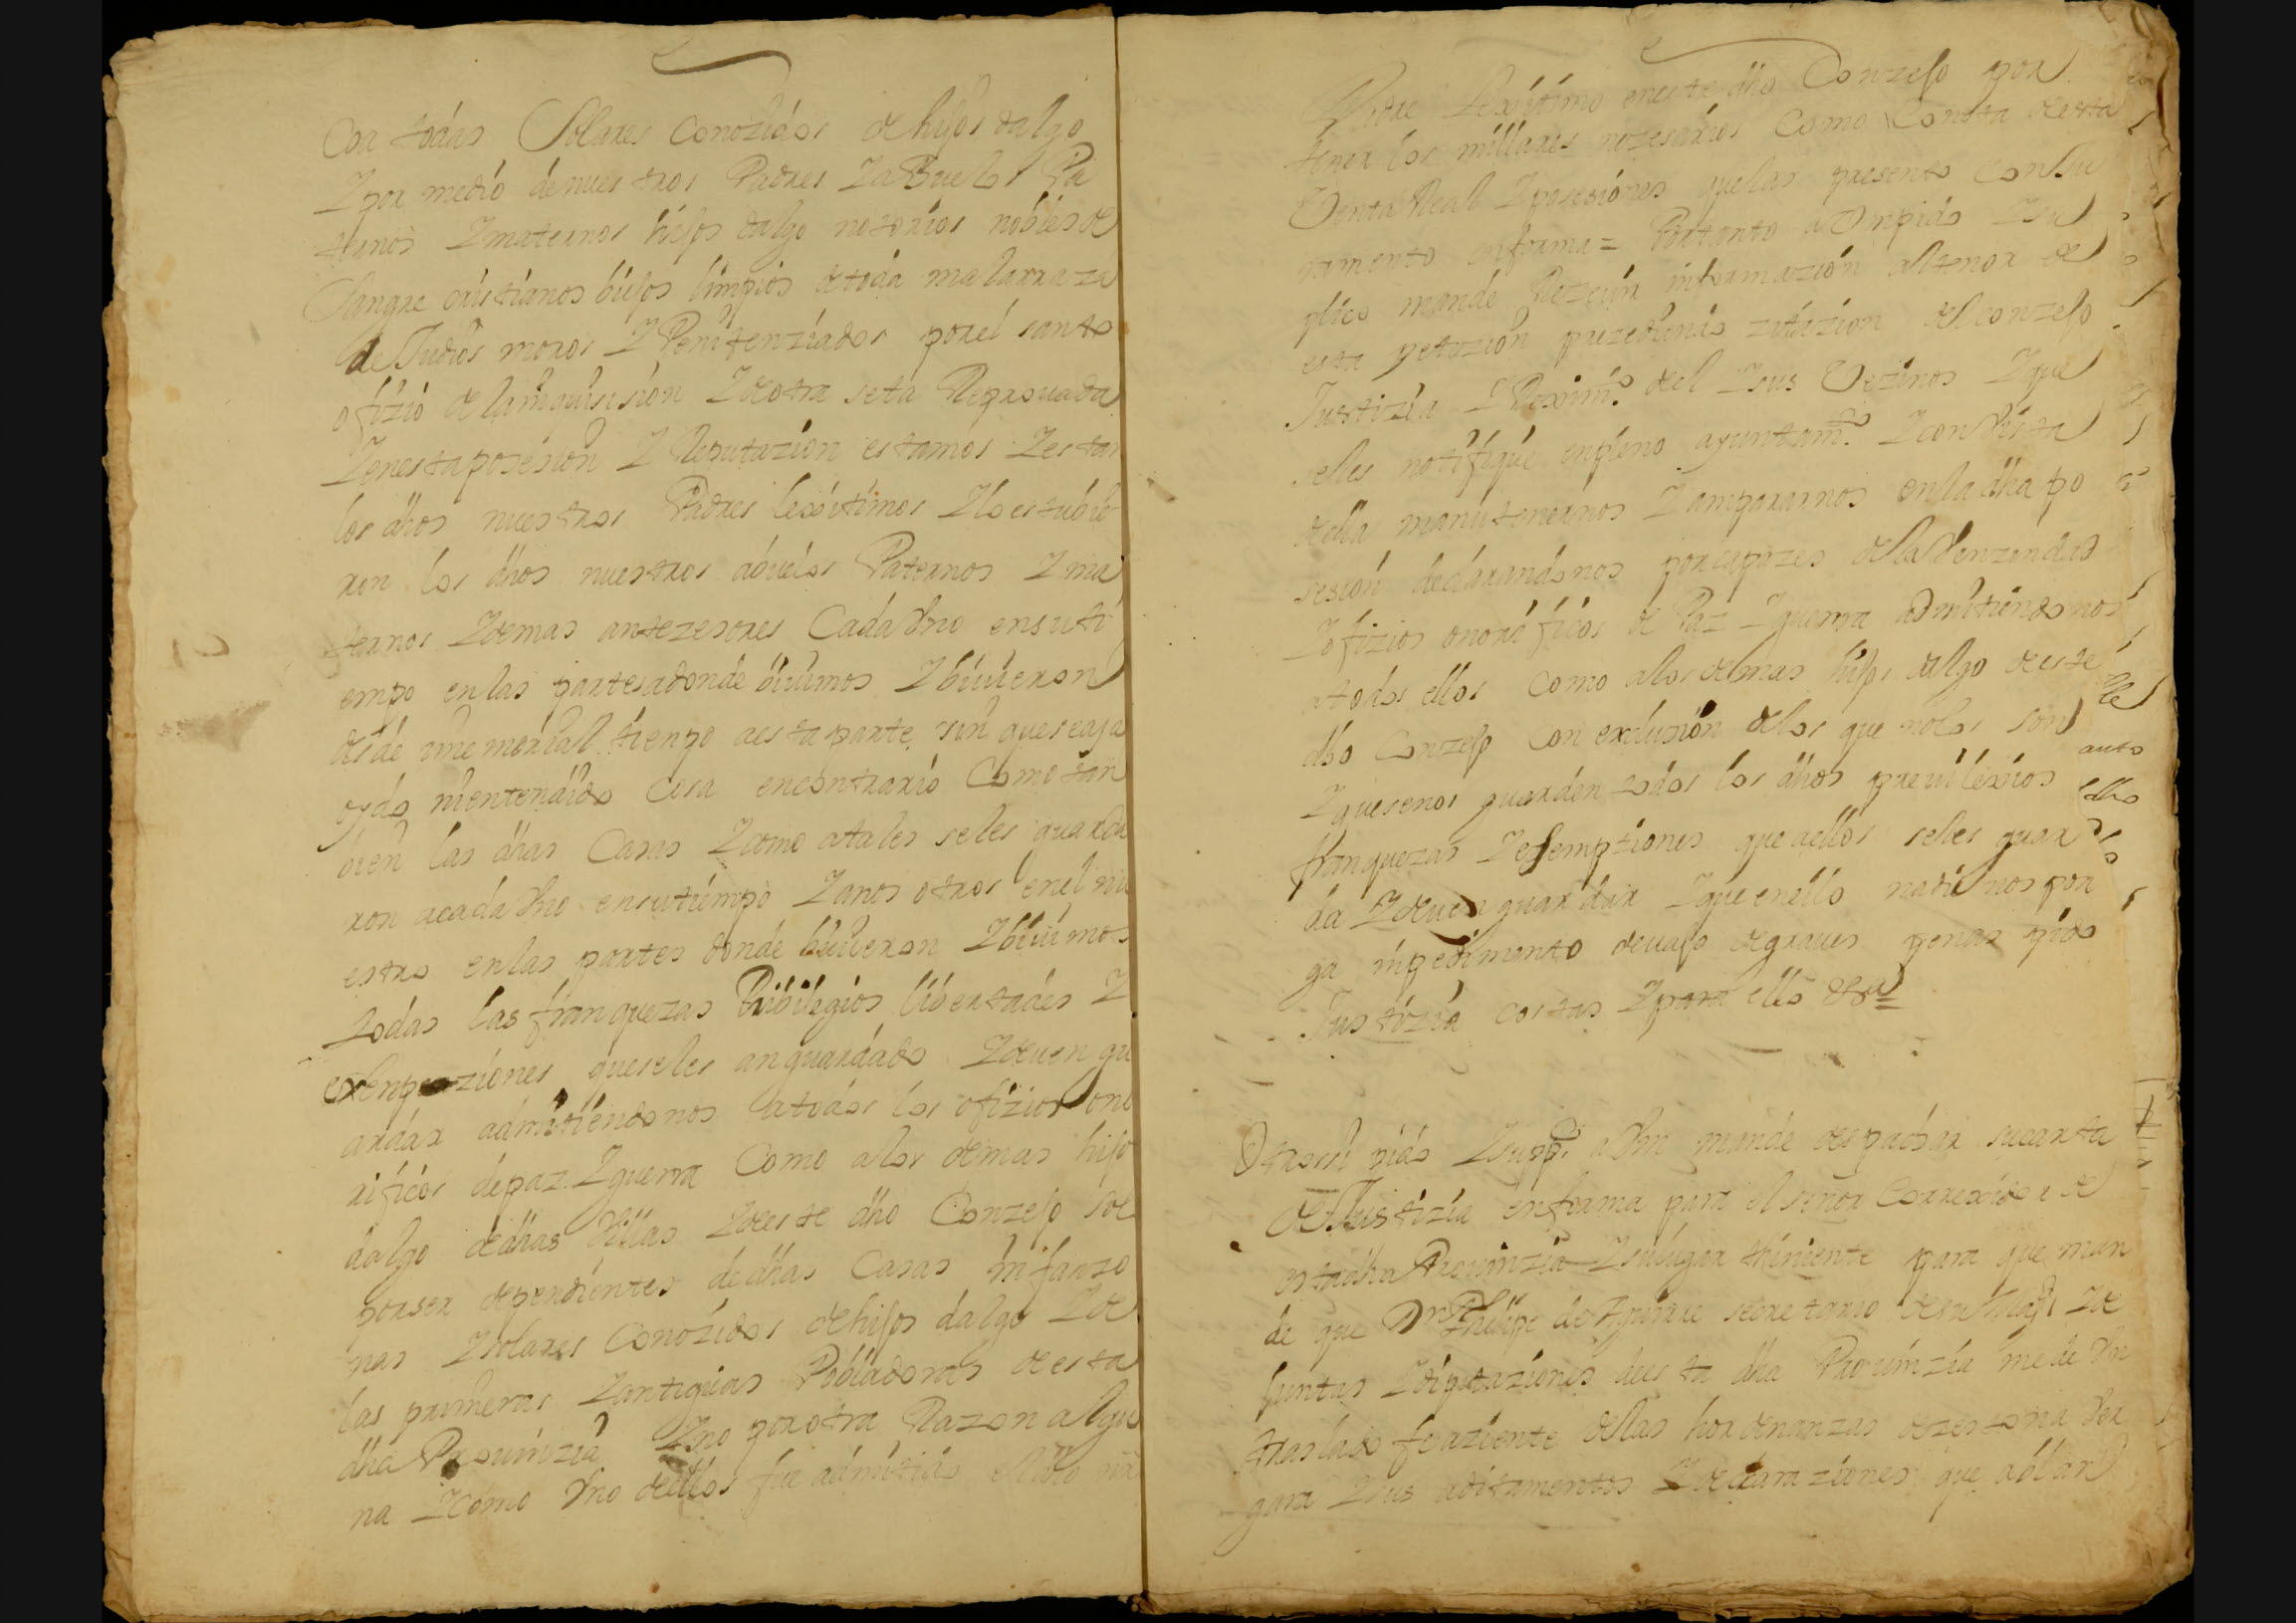 con todas Solares conozidos de hijos dalgo
Y por medio de nuestros Padres Y aBuelos Pa
ternos Y maternos hijos dalgo notorios nobles de
Sangre cristianos biejos limpios de toda mala rraza
de Judios moros Y Penitenziados por el santo
ofizio de la inquisision Y de otra seta Reprouada
Y en esta posesion Y Reputazion estamos Y estan
los dhos nuestros Padres lexitimos Y lo estubie
ron los dhos nuestros abuelos Paternos Y ma
ternos Y demas antezesores Cada Vno en su ti
empo en las partes adonde biuimos Y biuieron
desde ynmemorial tienpo a esta parte sin que se aja
oydo ni entendido cosa en contrario Como tan
bien las dhas Casas Y como a tales se les guarda
ron a cada Vno en su tiempo Y a nos otros en el nu
estro en las partes donde biuieron Y biuimos
todas las franquezas Pribilegios libertades Y
exenpziones que se les an guardado Y deuen gu
ardar admitiendonos a todos los ofizios ono
rificos de paz Y guerra Como a los demas hijos
dalgo de dhas Villas Y de este dho Conzejo
por ser dependientes de dhas Casas infanzo
nas Y solares Conozidos de hijos dalgo Y de
las primeras Y antiguas Pobladoras de esta
dha Prouinzia Y no por otra Razon algu
na Y como Vno de ellos fue admitido el dho mi
Padre Lexitimo en este dho Conzejo por
tener los millares nezesarios Como Consta de esta
Carta Real Y posesiones que las presento Con Ju
ramento en forma = Por tanto a Vm pido Y su
plico mande Rezeuir informazion al tenor de
esta petizion prezediendo zitazion del conzejo
Justizia Y Rexim.to del Y sus Vezinos Y que
se les notifique en pleno ayuntam.to Y con Vista
de ella manutenernos Y ampararnos en la dha po
sesion declarandonos por capazes de la Venzindad
Y ofizios onorificos de Paz Y guerra admitiendonos
a todos ellos como a los demas hijos dalgo de este
dho Conzejo con exclusion de los que no lo son
Y que se nos guarden todos los dhos preuilexios
franquezas Y esempziones que a ellos se les guar
da Y deuen guardar Y que en ello nadie nos pon
ga inpedimento deuajo de graues penas pido
Justizia costas Y para ello &ra =
Otrosi pido Y supp.co a Vm mande despachar su carta
de Justizia en forma para el señor Correxidor de
esta dha Prouinzia Y su lugar theniente para que man
de que Dn Phelipe de Aguirre secretario de su Magd Y de
Juntas Y diputaziones de esta dha Prouinzia me de Vn
traslado feaziente de las hordenanzas de zestona Ver
gara Y sus aditamentos Y declaraziones que ablan